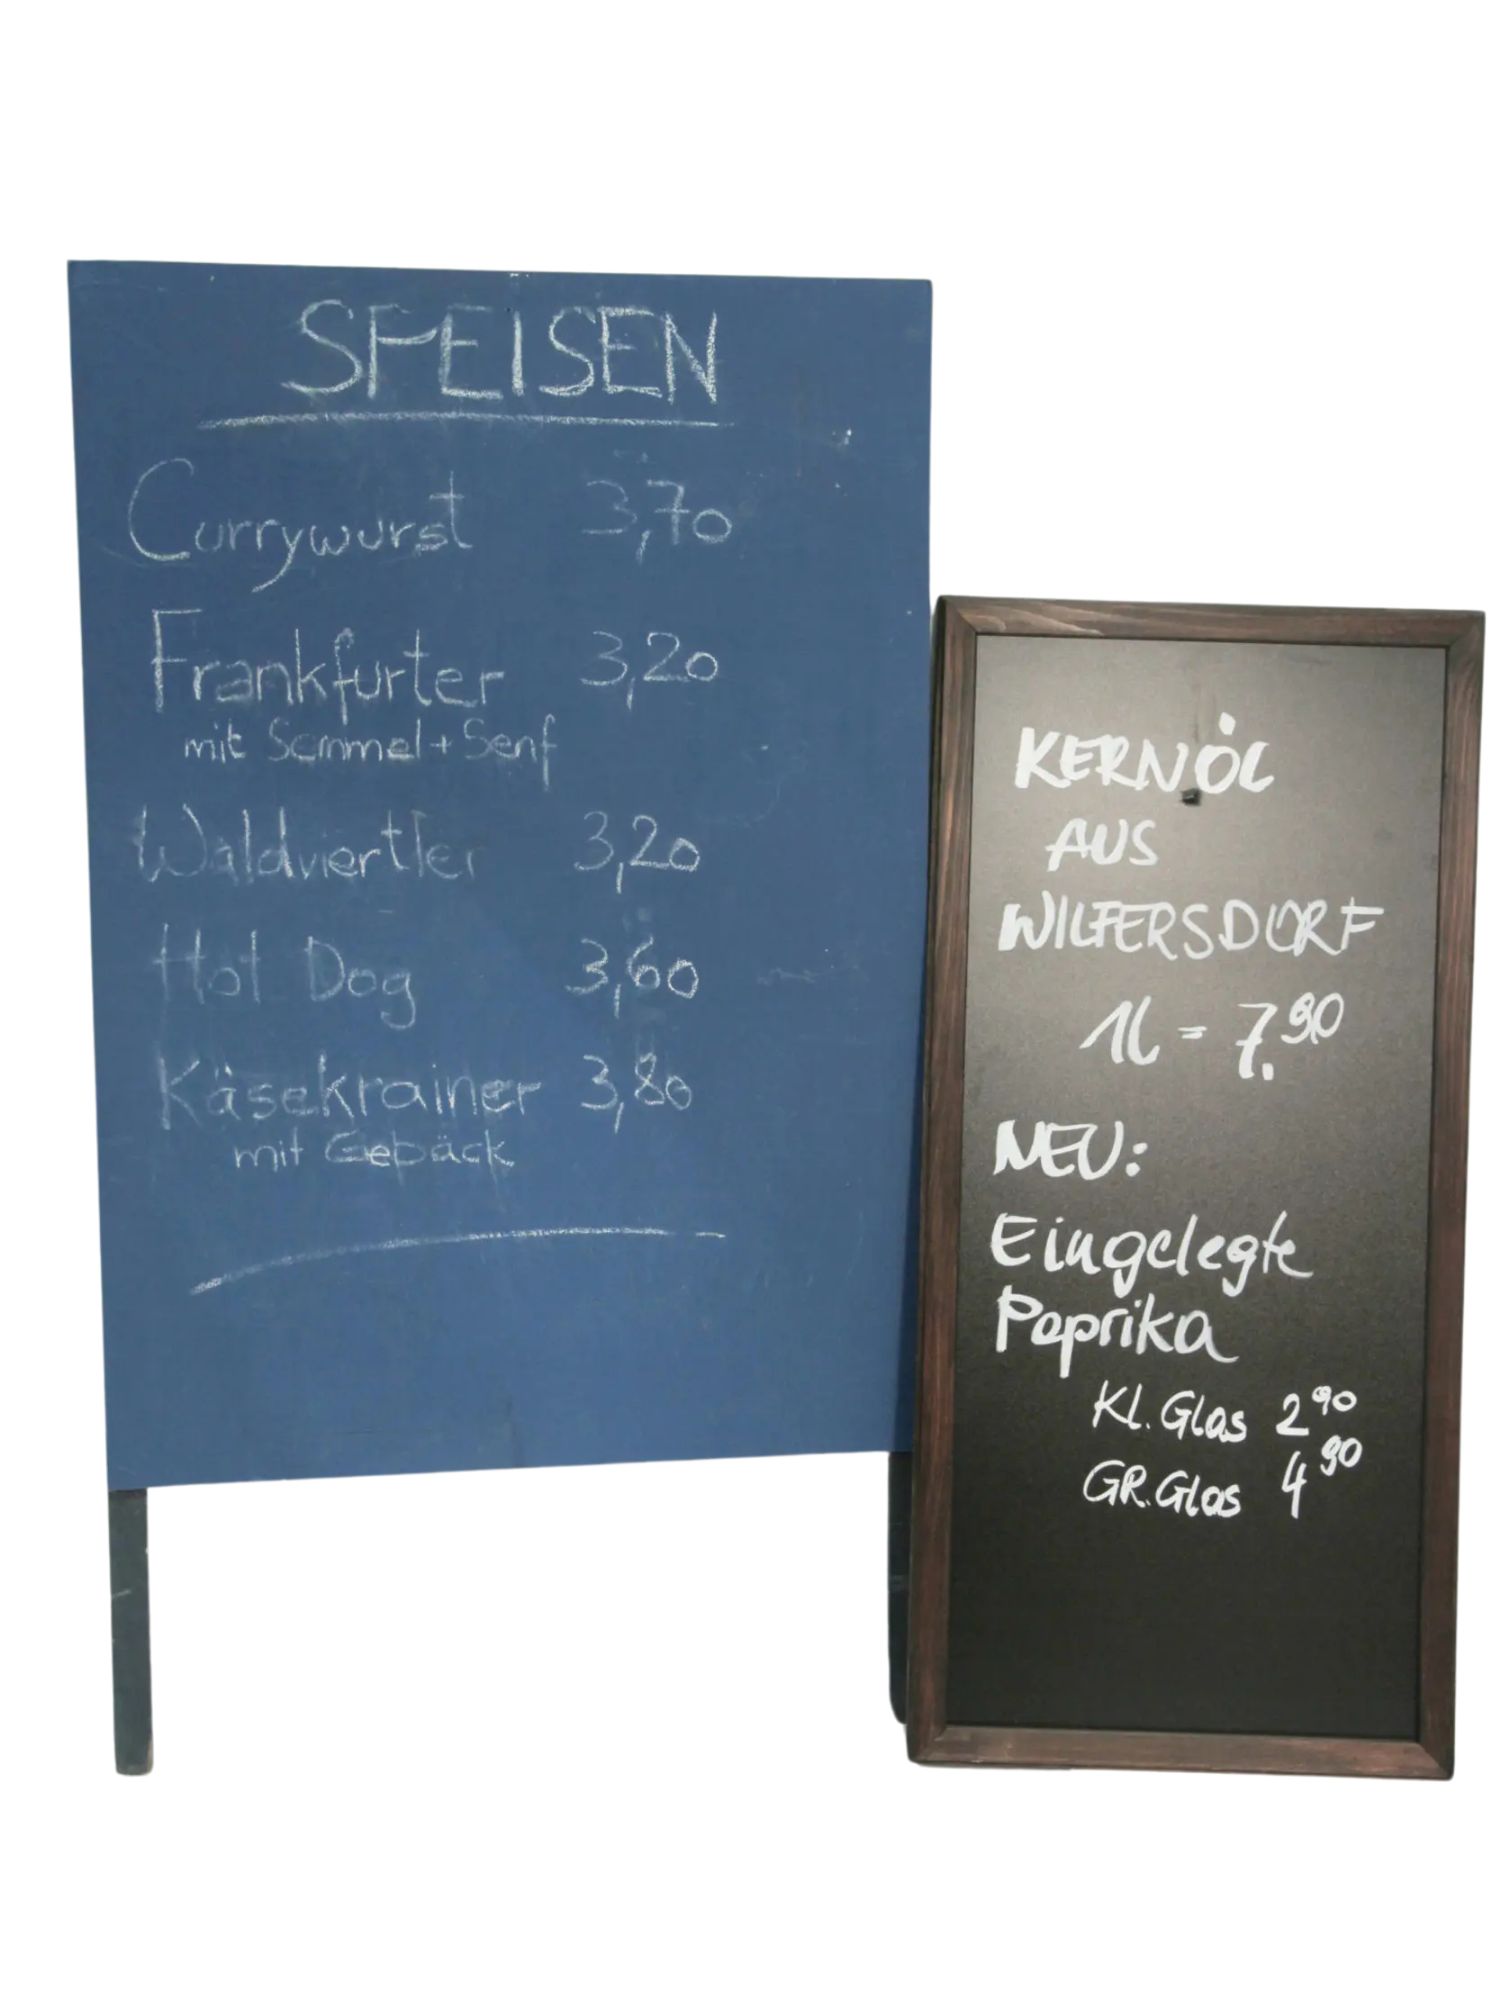 SPEISEN
Currywurst 3,70
Frankfurter 3,20
mit Semmel + Senf
Waldviertler 3,20
Hot Dog 3,60
Käsekrainer 3,80
mit Gebäck
KERNÖL
AUS
WILFERSDORF
1l = 7.90
NEU:
Eingelegte
Paprika
Kl. Glas 2 90
GR. Glas 4 90